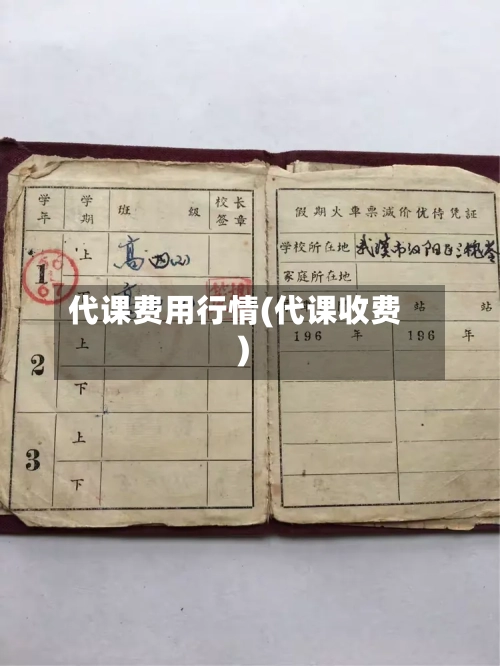 学年 学期 班 级 校长签章
1 上 高
代课费用行情(代课收费
)
2 上
下
3 上
下
假期火车票减价优待凭证
学校所在地 武汉市汉阳区三
家庭所在地
站 站
196 年 196 年